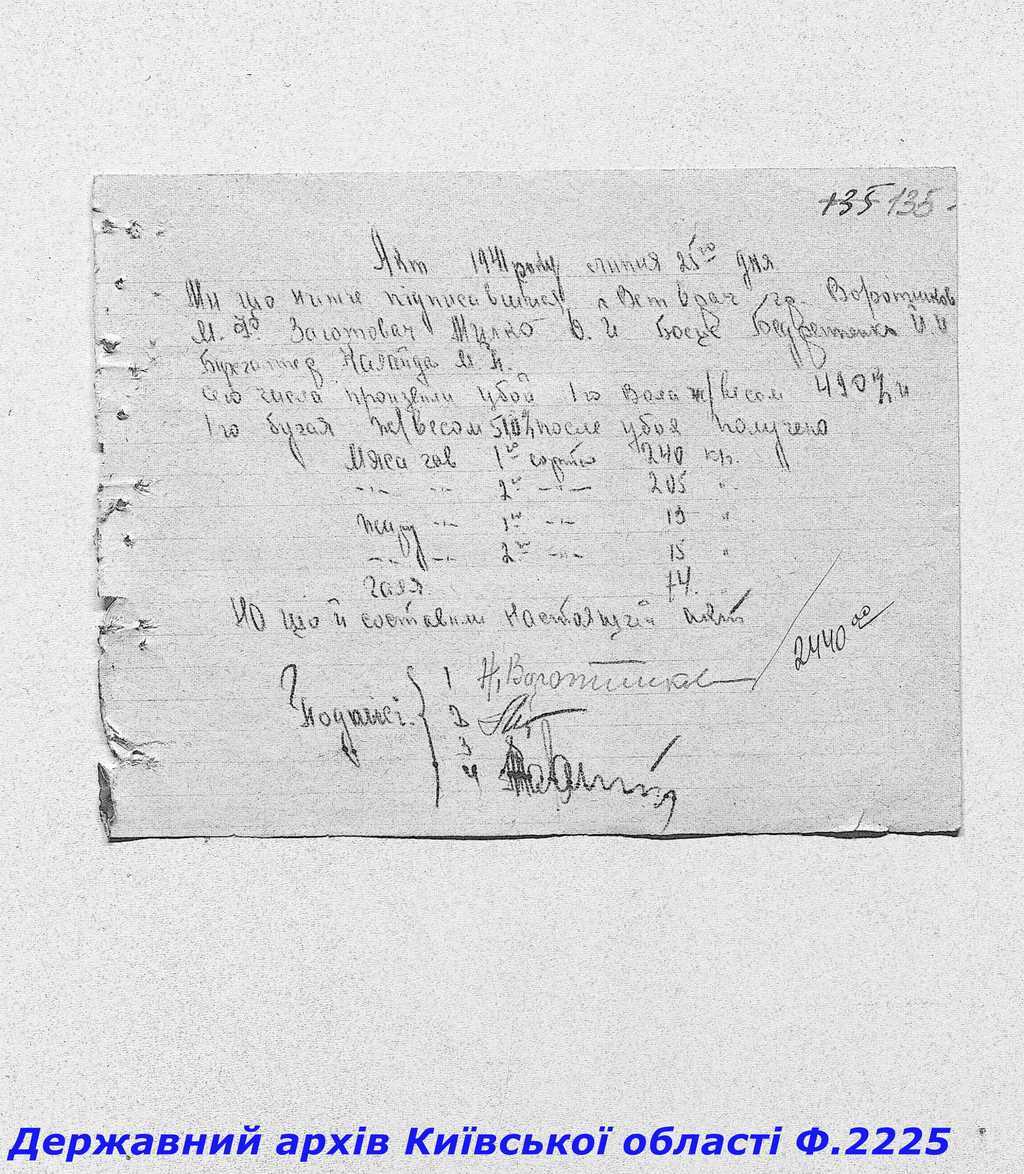 135 135
Акт 1941 року липня 25го дня
Ми що нижче підписавшися, Вет врач гр. Воротников
М. Ф. Заготовач О. И Боец И. И
Бухгалтер М. Н.
сего числа произвели убой 1го вола ж/весом 490
1го бугая ж/весом 510 после убоя получено
Мяса гов 1го сорта 240 кг.
-"- -"- 2го -"- 205 "
Жиру -"- 1го -"- 19 "
-"- -"- 2го -"- 15 "
74.
На що й составили настоящий акт
2440 00
Подписі.
1
2
3
4
Державний архів Київської області Ф.2225